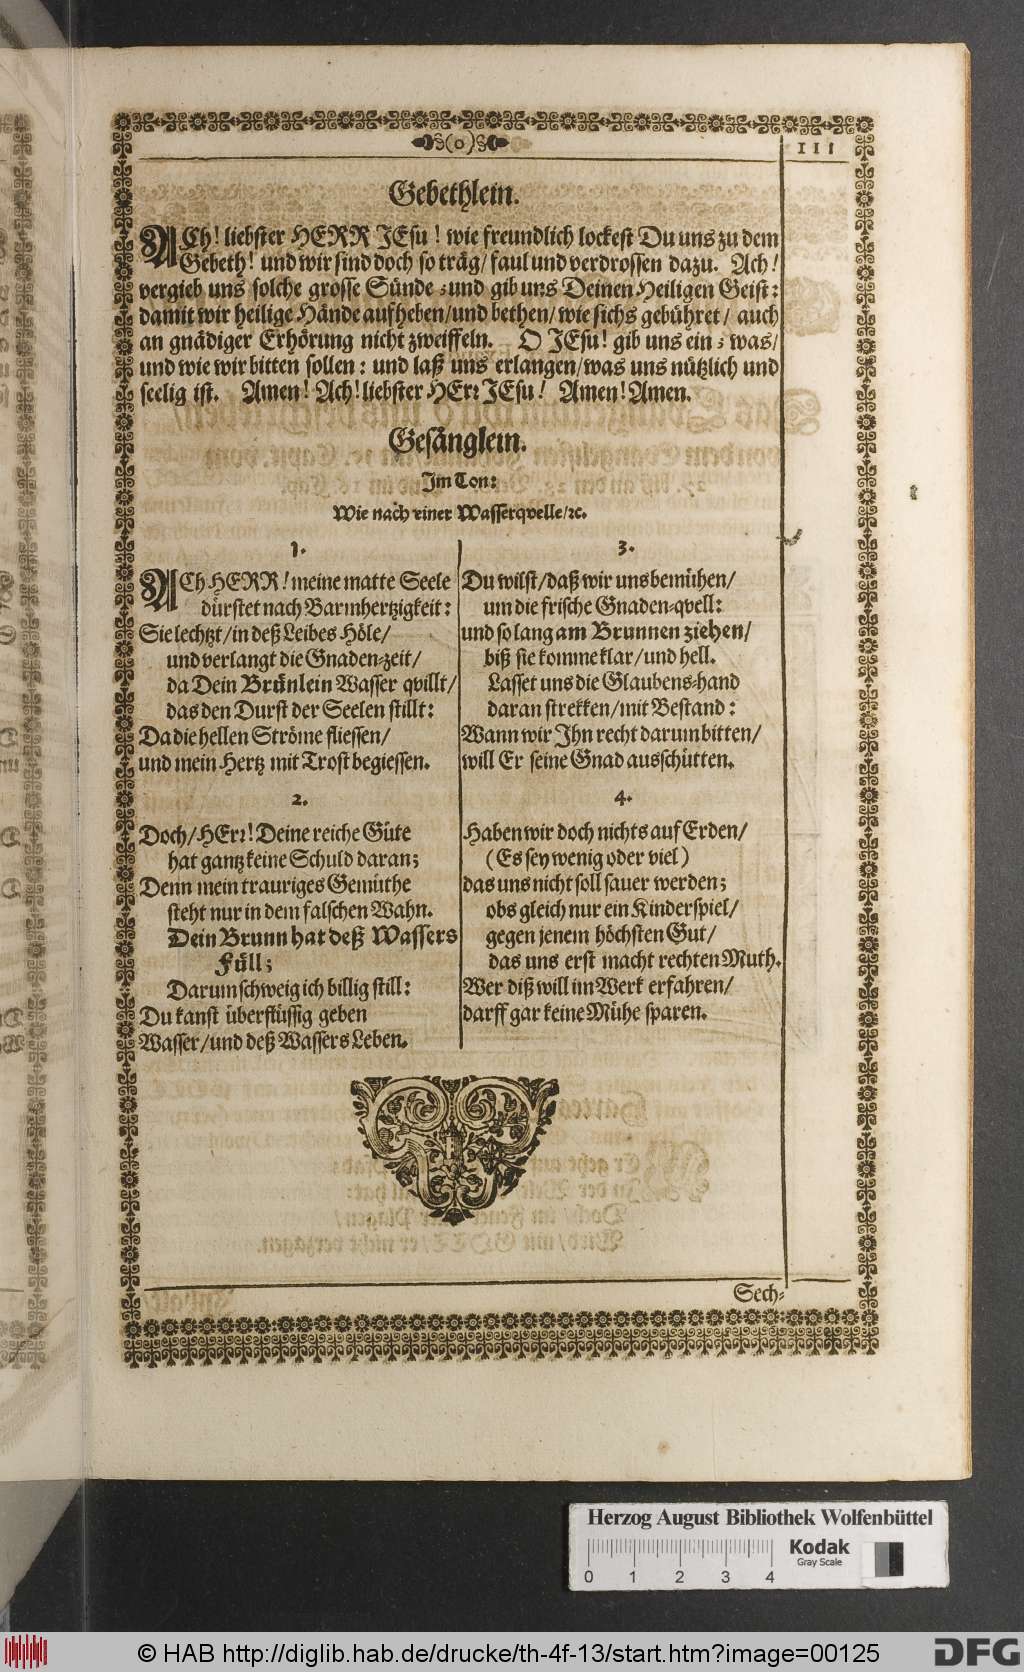 (o)
111
Gebethlein.
ACh! liebster HERR JEsu! wie freundlich lockest Du uns zu dem
Gebeth! und wir sind doch so träg/ faul und verdrossen dazu. Ach!
vergieb uns solche grosse Sünde, und gib uns Deinen Heiligen Geist:
damit wir heilige Hände aufheben/und bethen/wie sichs gebühret/ auch
an gnädiger Erhörung nicht zweiffeln. O JEsu! gib uns ein, was/
und wie wir bitten sollen: und laß uns erlangen/was uns nützlich und
seelig ist. Amen! Ach! liebster HErr JEsu! Amen! Amen.
Gesänglein.
Im Ton:
Wie nach einer Wasserqvelle/ꝛc.
1.
ACh HERR! meine matte Seele
dürstet nach Barmhertzigkeit:
Sie lechtzt/in deß Leibes Höle/
und verlangt die Gnaden-zeit/
da Dein Brünlein Wasser qvillt/
das den Durst der Seelen stillt:
Da die hellen Ströme fliessen/
und mein Hertz mit Trost begiessen.
2.
Doch/HErr! Deine reiche Güte
hat gantz keine Schuld daran;
Denn mein trauriges Gemüthe
steht nur in dem falschen Wahn.
Dein Brunn hat deß Wassers
Füll;
Darum schweig ich billig still:
Du kanst überflüssig geben
Wasser/und deß Wassers Leben.
3.
Du wilst/daß wir uns bemühen/
um die frische Gnaden-qvell:
und so lang am Brunnen ziehen/
biß sie komme klar/und hell.
Lasset uns die Glaubens-hand
daran strekken/mit Bestand:
Wann wir Ihn recht darum bitten/
will Er seine Gnad ausschütten.
4.
Haben wir doch nichts auf Erden/
(Es sey wenig oder viel)
das uns nicht soll sauer werden;
obs gleich nur ein Kinderspiel/
gegen jenem höchsten Gut/
das uns erst macht rechten Muth.
Wer diß will im Werk erfahren/
darff gar keine Mühe sparen.
Sech-
Herzog August Bibliothek Wolfenbüttel
Kodak
Gray Scale
0 1 2 3 4
© HAB http://diglib.hab.de/drucke/th-4f-13/start.htm?image=00125
DFG